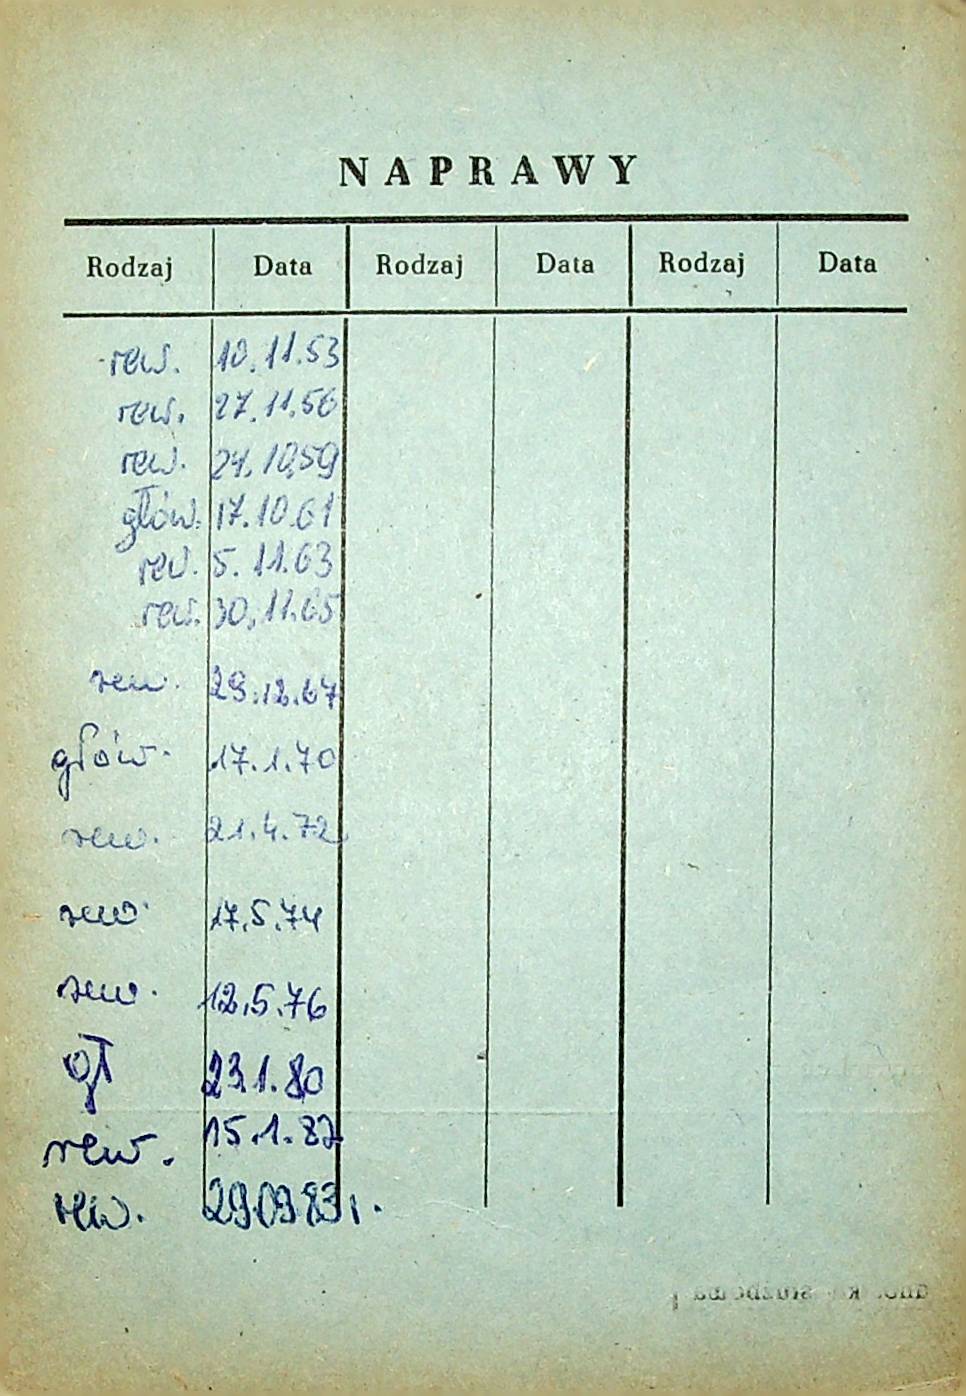 NAPRAWY
Rodzaj Data Rodzaj Data Rodzaj Data
rew. 10.11.53
rew. 27.11.56
rew. 24.10.59
głów. 17.10.61
rew. 5.11.63
rew. 30.11.65
rew. 29.12.67
głów. 17.1.70
rew. 21.4.72
rew. 17.5.74
rew. 12.5.76
gł 23.1.80
rew. 15.1.82
rew. 29.09.83 r.